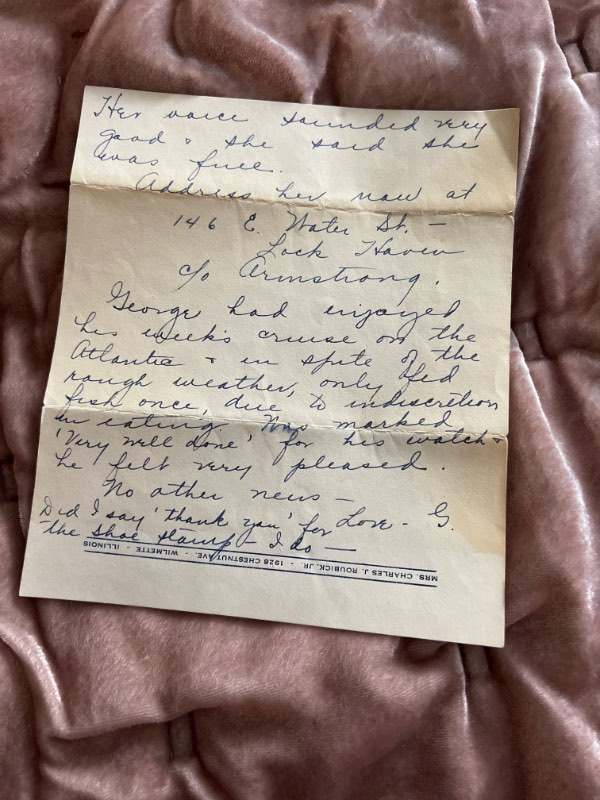 Her voice sounded very
good & she said she
was fine.
Address her now at
146 E. Water St. —
Lock Haven
c/o Armstrong.
George had enjoyed
his week's cruise on the
Atlantic & in spite of the
rough weather, only fed
fish once, due to indiscretion
in eating. Was marked
'Very well done' for his watch &
he felt very pleased.
No other news —
Love - G.
Did I say 'thank you' for
the shoe stamp - I do —
MRS. CHARLES J. ROUBICK, JR. · 1926 CHESTNUT AVE. · WILMETTE · ILLINOIS